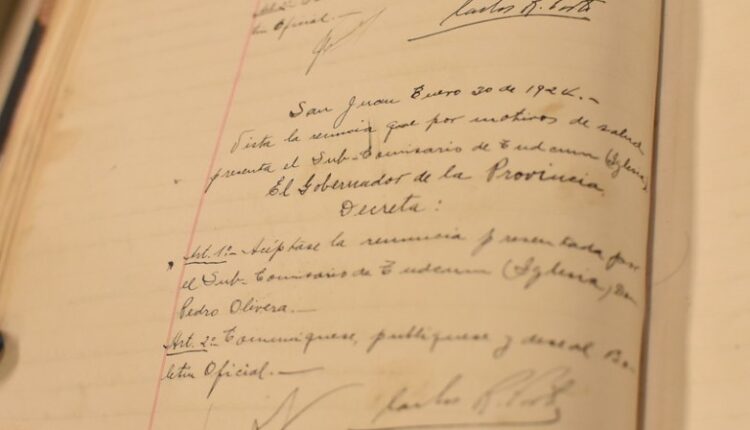 tin Oficial.
Carlos R. Porto
San Juan Enero 30 de 1924.-
Vista la renuncia que por motivos de salud
presenta el Sub-Comisario de Tudcum (Iglesia)
El Gobernador de la Provincia
Decreta:
Art. 1º- Acéptase la renuncia presentada por
el Sub-Comisario de Tudcum (Iglesia) Don
Pedro Olivera.-
Art. 2º Comuníquese, publíquese y dese al Bo-
letin Oficial.-
Carlos R. Porto